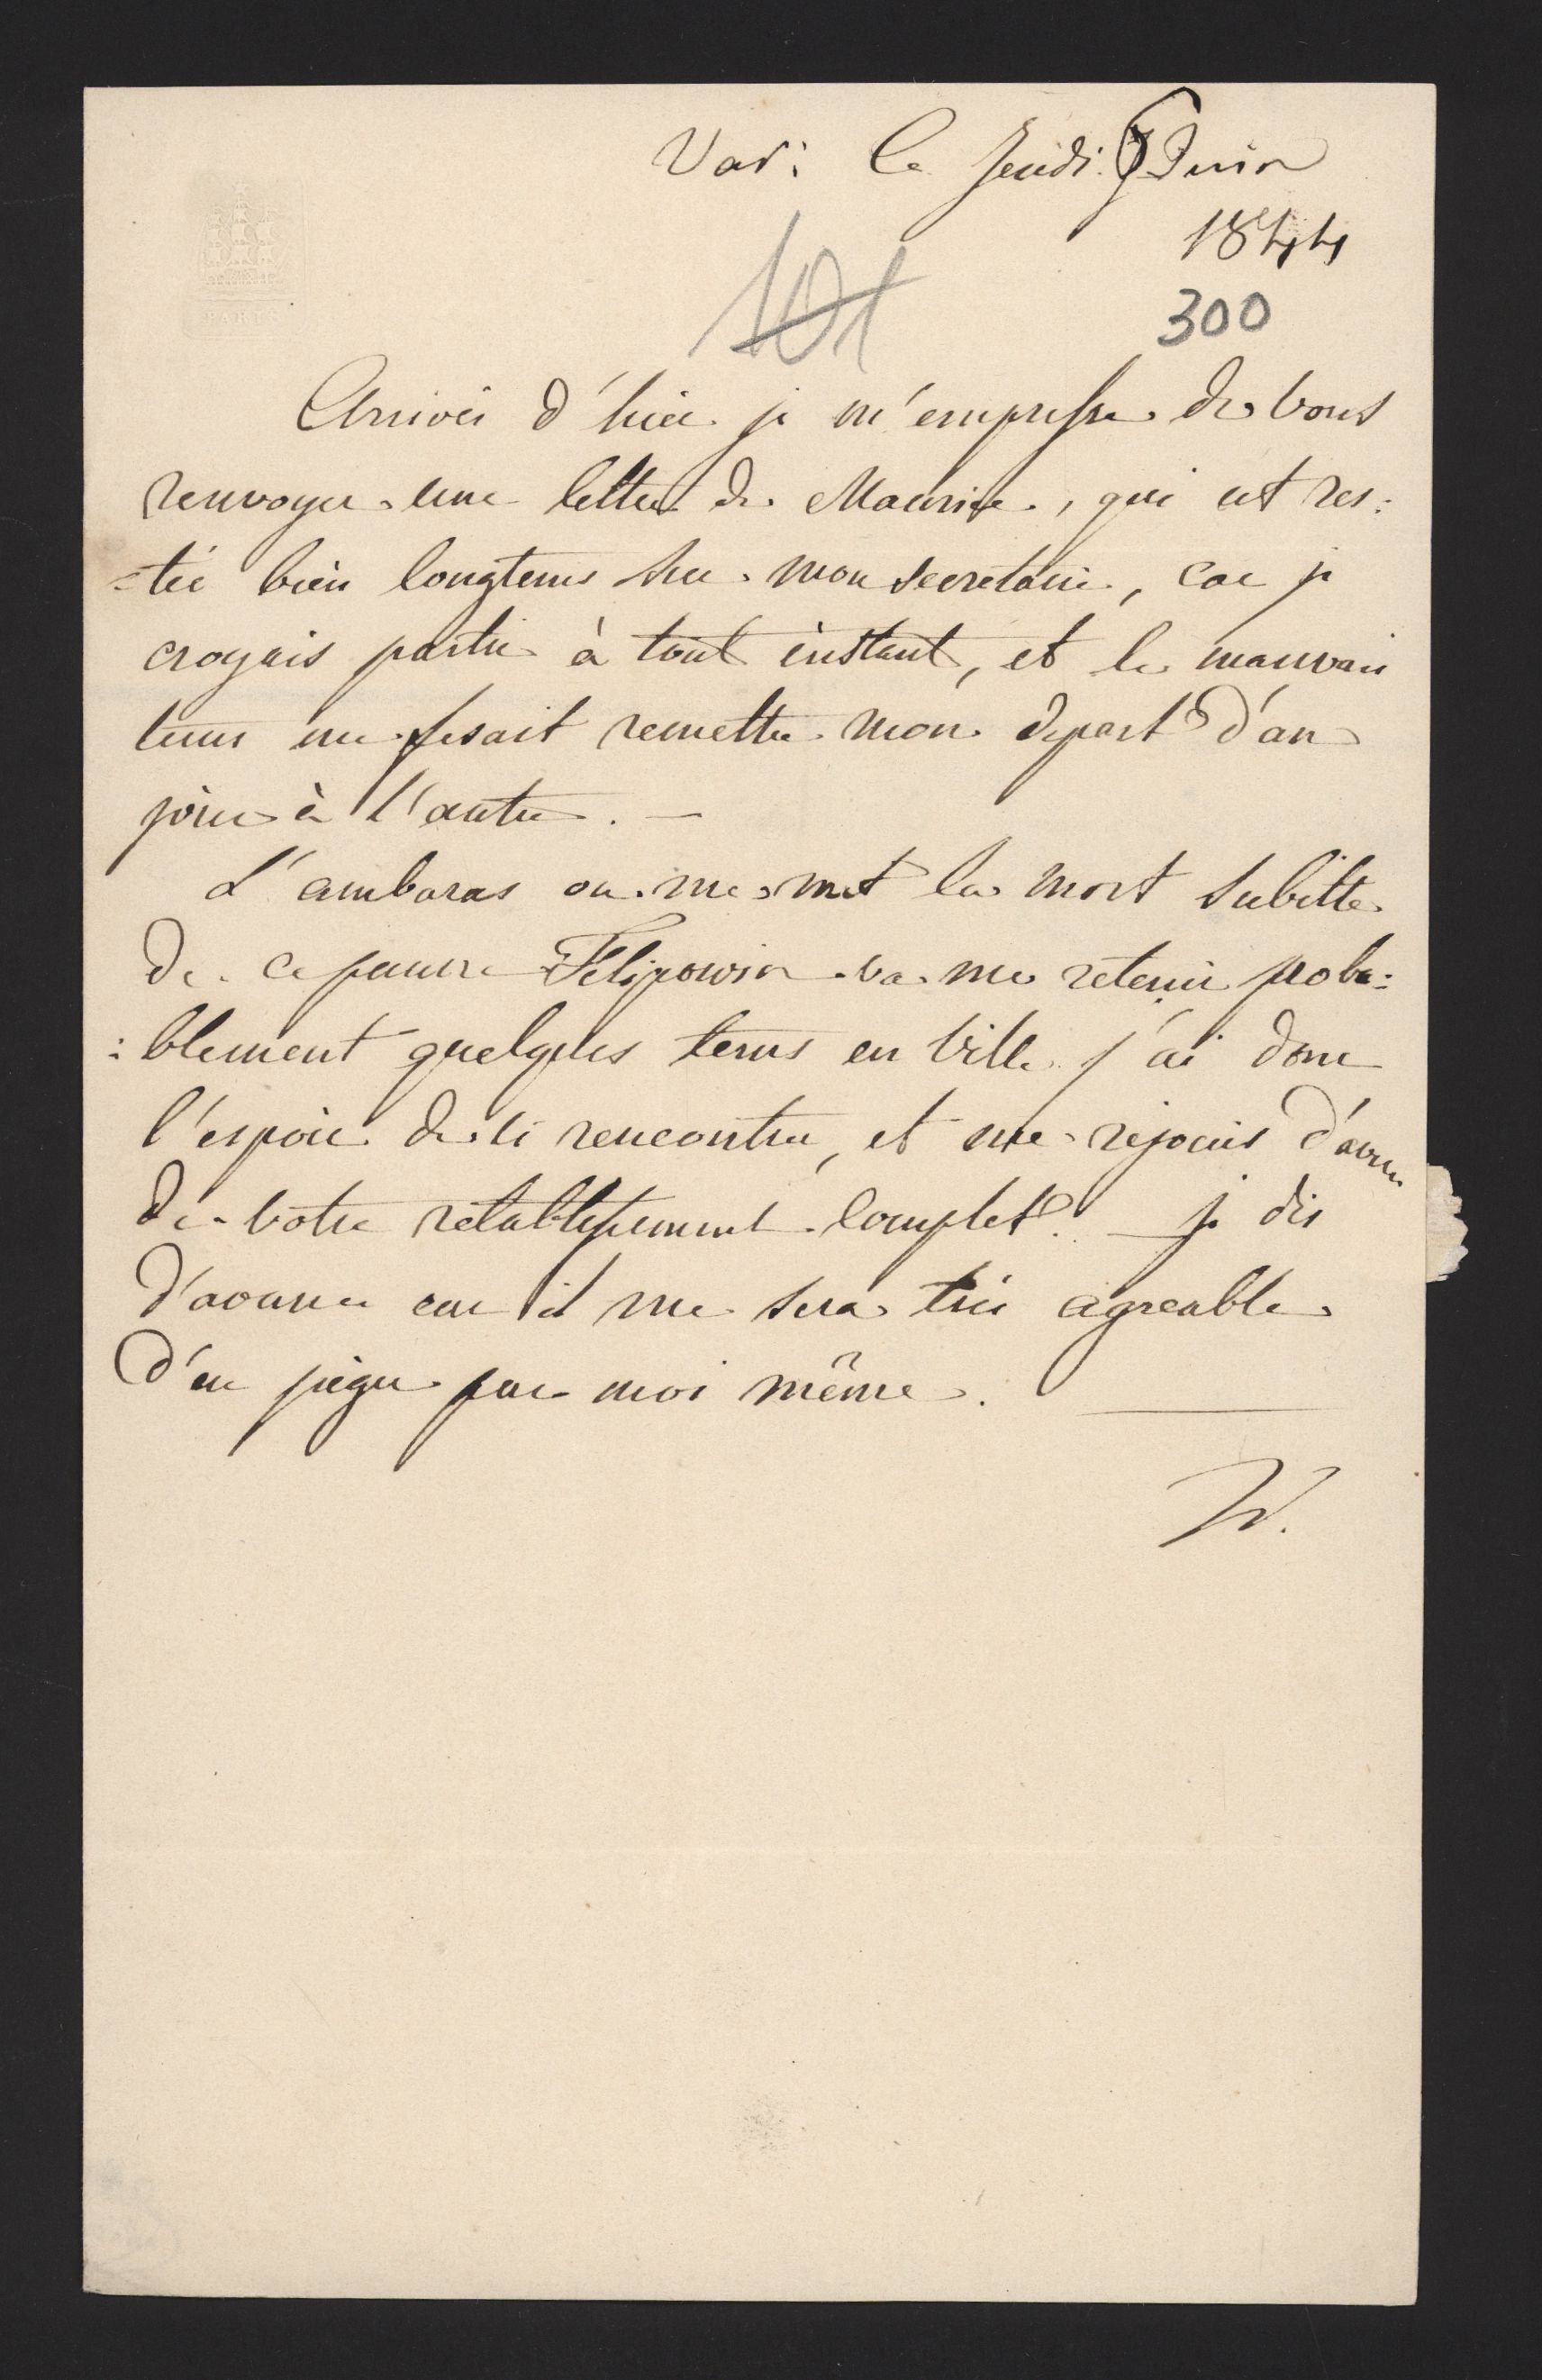 Vars: le Jeudi 7 Juin
1844
101
300
PARIS
Arrivée d'hier je m'empresse de vous
renvoyer une lettre de Maurice, qui est res:
=tée bien longtems sur mon secretaire, car je
croyais partir à tout instant, et le mauvais
tems me fesait remettre mon depart d'un
jour à l'autre. —
L'ambaras ou me met la mort subitte
de ce pauvre Felipowicz va me retenir proba:
:blement quelques tems en ville j'ai donc
l'espoir de
rencontrer, et me rejouis d'avance
de votre retablissement complet. — je dis
d'avance car il me sera très agreable
d'en juger par moi même.
W.